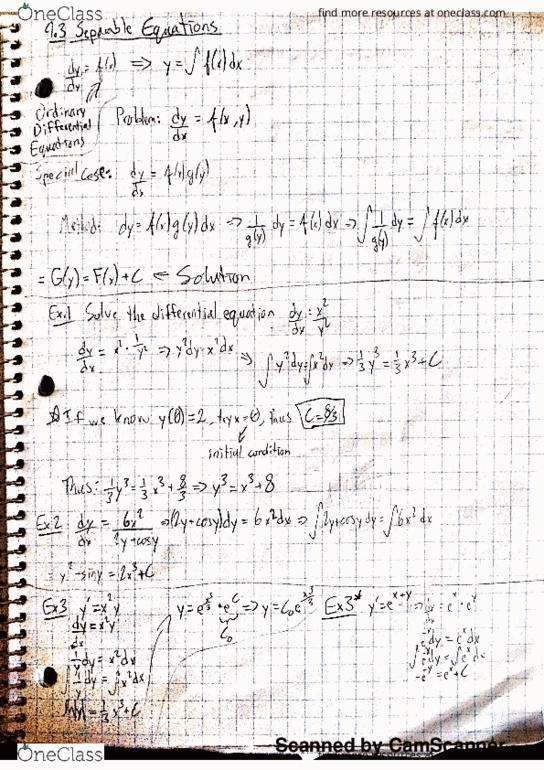 OneClass
find more resources at oneclass.com
9.3 Separable Equations
dy/dx = f(x) ⇒ y = ∫ f(x) dx
Ordinary
Differential
Equations
Problem: dy/dx = f(x,y)
Special Case: dy/dx = f(x)g(y)
Method: dy = f(x)g(y)dx ⇒ 1/g(y) dy = f(x) dx ⇒ ∫ 1/g(y) dy = ∫ f(x) dx
= G(y) = F(x) + C ← Solution
Ex.1 Solve the differential equation dy/dx = x²/y²
dy/dx = x² · 1/y² ⇒ y²dy = x²dx ⇒ ∫ y²dy = ∫ x²dx ⇒ 1/3 y³ = 1/3 x³ + C
If we know: y(0) = 2, try x = 0, thus C = 8/3
initial condition
Thus: 1/3 y³ = 1/3 x³ + 8/3 ⇒ y³ = x³ + 8
Ex.2 dy/dx = 6x²/2y+cosy ⇒ (2y+cosy)dy = 6x²dx ⇒ ∫ 2y+cosy dy = ∫ 6x² dx
= y² - siny = 2x³ + C
Ex3 y' = x²y
dy/dx = x²y
1/y dy = x²dx
∫ 1/y dy = ∫ x²dx
= 1/3 x³ + C
y = e^(x³/3) · e^C ⇒ y = C₀e^(x³/3)
C₀
Ex3* y' = e^(x+y) ⇒ = e^x · e^y
e^-y dy = e^x dx
∫ e^-y dy = ∫ e^x dx
-e^-y = e^x + C
Scanned by CamScanner
OneClass